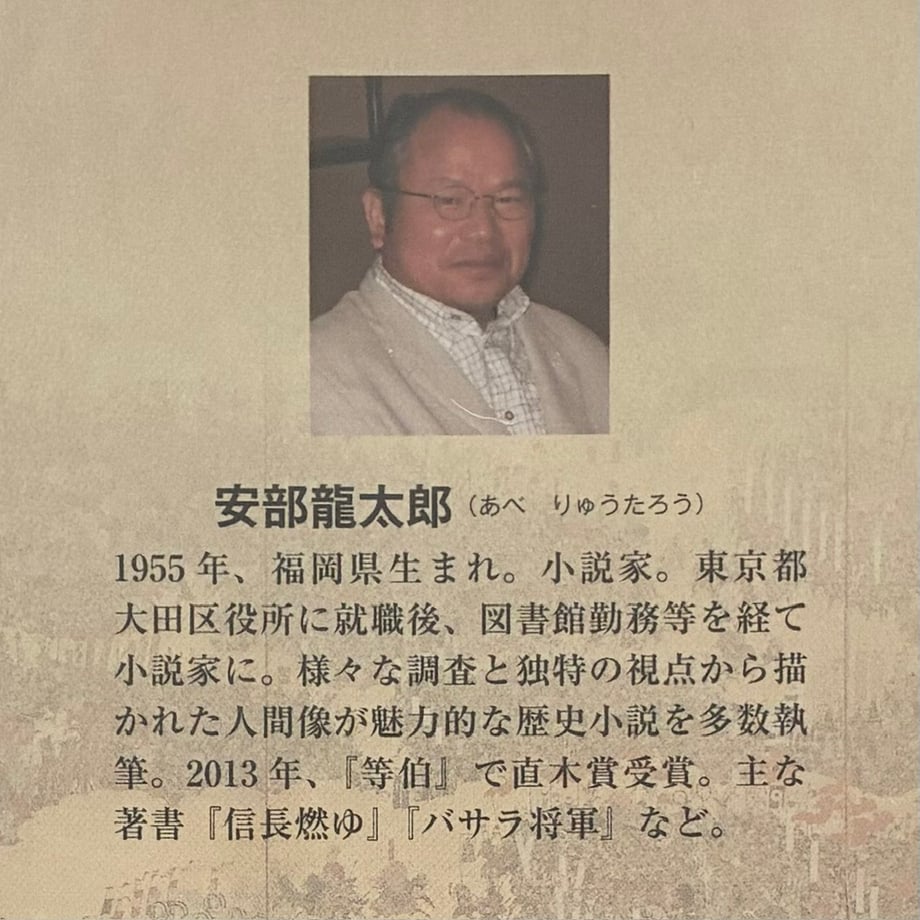 安部龍太郎（あべ　りゅうたろう）
1955年、福岡県生まれ。小説家。東京都
大田区役所に就職後、図書館勤務等を経て
小説家に。様々な調査と独特の視点から描
かれた人間像が魅力的な歴史小説を多数執
筆。2013年、『等伯』で直木賞受賞。主な
著書『信長燃ゆ』『バサラ将軍』など。